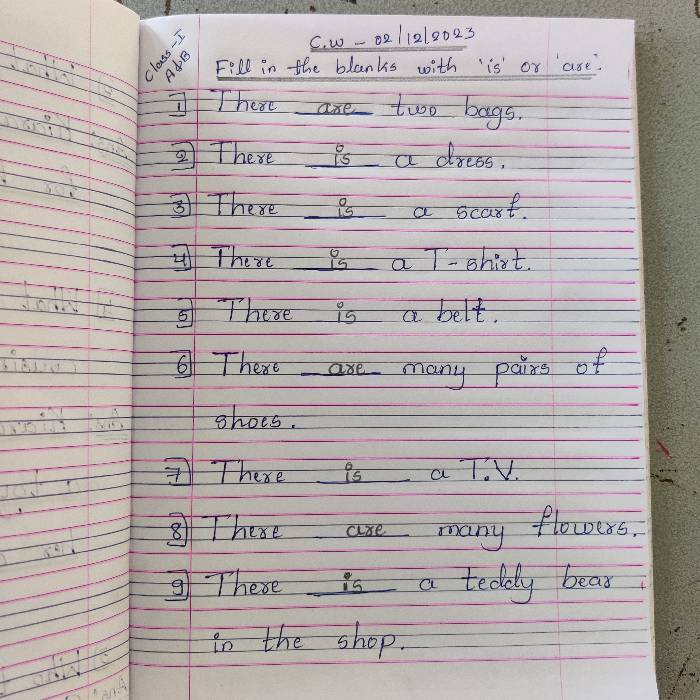 Class-I
A&B
C.W - 02/12/2023
Fill in the blanks with 'is' or 'are'.
1] There are two bags.
2] There is a dress.
3] There is a scarf.
4] There is a T-shirt.
5] There is a belt.
6] There are many pairs of
shoes.
7] There is a T.V.
8] There are many flowers.
9] There is a teddy bear
in the shop.